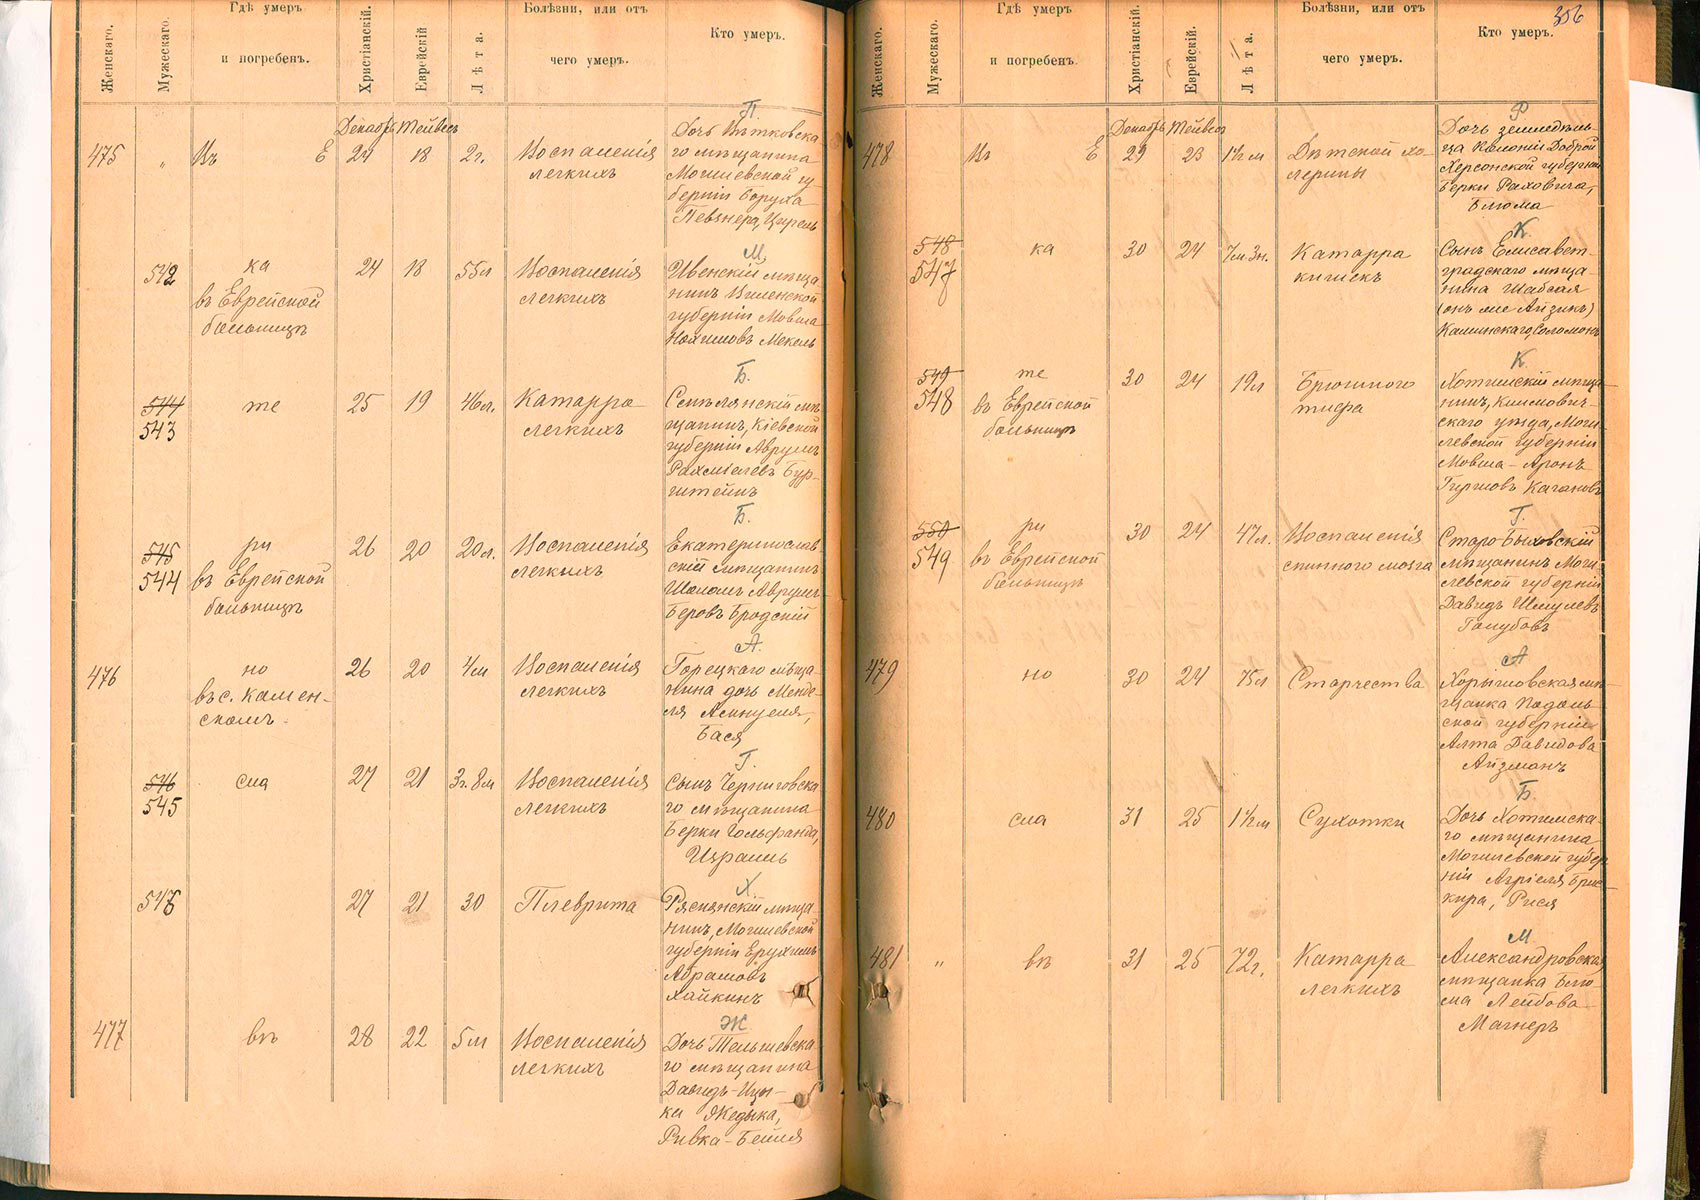 Женскаго.
Мужескаго.
Гдѣ умеръ
и погребенъ.
Христіанскій.
Еврейскій
Лѣта.
Болѣзни, или отъ
чего умеръ.
Кто умеръ.
П.
475 „ Въ Е Декабрь 24 Тейвесъ 18 2 г. Воспаленія
легкихъ
Дочь
го мѣщанина
Могилевской гу-
берніи Боруха
Певзнера, Цирель
М.
542 ка 24 18 55 л Воспаленія
въ Еврейской легкихъ
больницѣ
Ивенскій мѣща-
нинъ Виленской
губерніи Мовша
Нохимовъ Мекель
Б.
544
543 те 25 19 46 л. Катарра
легкихъ
мѣ-
щанинъ, Кіевской
губерніи Аврумъ
Рахміелевъ Бур-
штейнъ
Б.
545
544 ри 26 20 20 л. Воспаленія
въ Еврейской легкихъ
больницѣ
Екатеринослав
скій мѣщанинъ
Шоломъ Аврумъ-
Беровъ Бродскій
А.
476 но 26 20 4 м Воспаленія
въ с. Камен- легкихъ
скомъ.
Горецкаго мѣща-
нина дочь Менде-
ля
Бася
Г.
546
545 сла 27 21 3 г. 8 м Воспаленія
легкихъ
Сынъ Черниговска
го мѣщанина
Берки Гольфанда,
Израиль
Х.
546 27 21 30 Плеврита
Ряснянскій мѣща-
нинъ, Могилевской
губерніи Ерухимъ
Абрамовъ
Хайкинъ
Ж
477 вѣ 28 22 5 м Воспаленія
легкихъ
Дочь Тельшевска
го мѣщанина
Давидъ-Ицы-
ки Жедыка,
Ривка-Бейля
356
Женскаго.
Мужескаго.
Гдѣ умеръ
и погребенъ.
Христіанскій.
Еврейскій.
Лѣта.
Болѣзни, или отъ
чего умеръ.
Кто умеръ.
Р.
478 Въ Е Декабрь 29 Тейвесъ 23 1½ м Дѣтской хо-
лерины
Дочь земледѣль-
ца Колоніи Доброй
Херсонской губерніи
Берки Раховича,
Блюма
К.
548
547 ка 30 24 7 м. 3 н. Катарра
кишекъ
Сынъ Елисавет-
градскаго мѣща-
нина Шабсая
(онъ же Айзикъ)
Каминскаго, Соломонъ
К
549
548 те 30 24 19 л Брюшного
въ Еврейской тифа
больницѣ
Хотимскій мѣща-
нинъ, Климович-
скаго уѣзда, Моги-
левской губерніи
Мовша-Аронъ
Гиршовъ Кагановъ
Г.
550
549 ри 30 24 47 л. Воспаленія
въ Еврейской спинного мозга
больницѣ
Старо-Быховскій
мѣщанинъ Моги-
левской губерніи
Давидъ Шмулевъ
Голубовъ
А
479 но 30 24 75 л Старчества
мѣ-
щанка Подоль-
ской губерніи
Алта Давидова
Айзманъ
Б.
480 сла 31 25 1½ м Сухотки
Дочь Хотимска-
го мѣщанина
Могилевской губер
ніи
Рися
М
481 „ вѣ 31 25 72 г. Катарра
легкихъ
Александровская
мѣщанка Блю-
ма Лейбова
Магнеръ